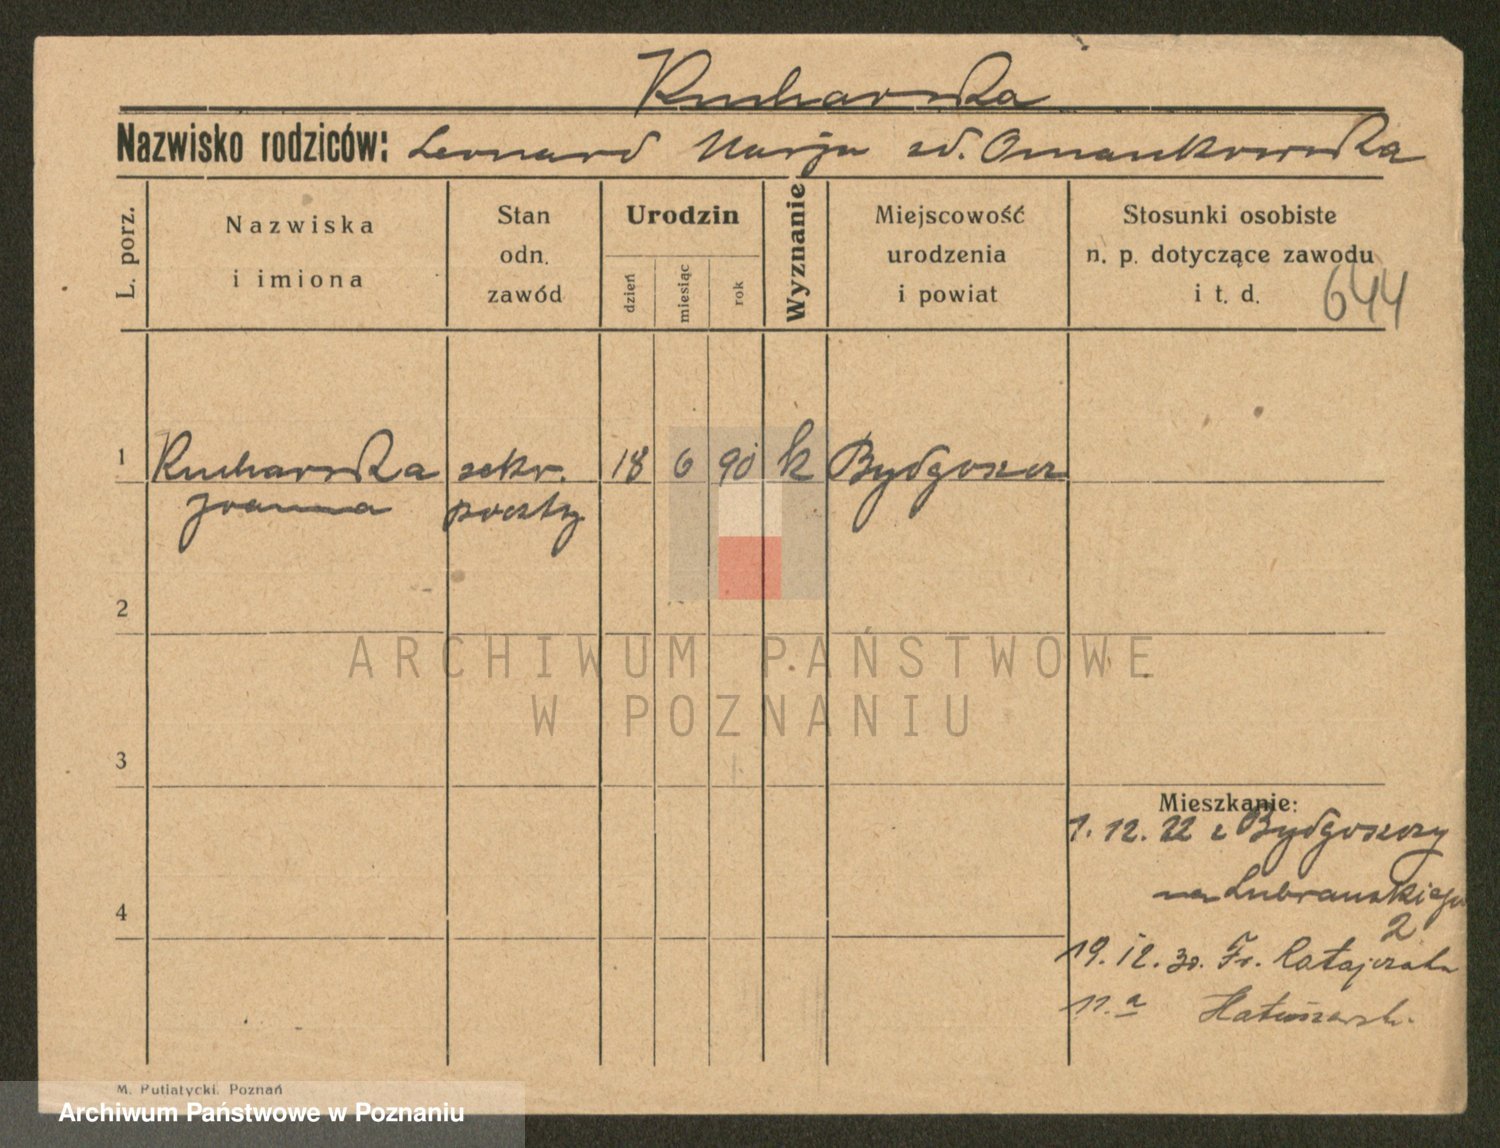 Kucharska
Nazwisko rodziców: Leonard Marja zd. Omankowska
L. porz.
Nazwiska
i imiona
Stan
odn.
zawód
Urodzin
dzień
miesiąc
rok
Wyznanie
Miejscowość
urodzenia
i powiat
Stosunki osobiste
n. p. dotyczące zawodu
i t. d.
644
1 Kucharska sekr. 18 6 90 k Bydgoszcz
Joanna poczty
2
ARCHIWUM PAŃSTWOWE
W POZNANIU
3
Mieszkanie:
1.12.22 z Bydgoszczy
na Lubrańskiego
4
2
19.12.30. Fr. Ratajczaka
11.a
M. Putiatycki. Poznań
Archiwum Państwowe w Poznaniu